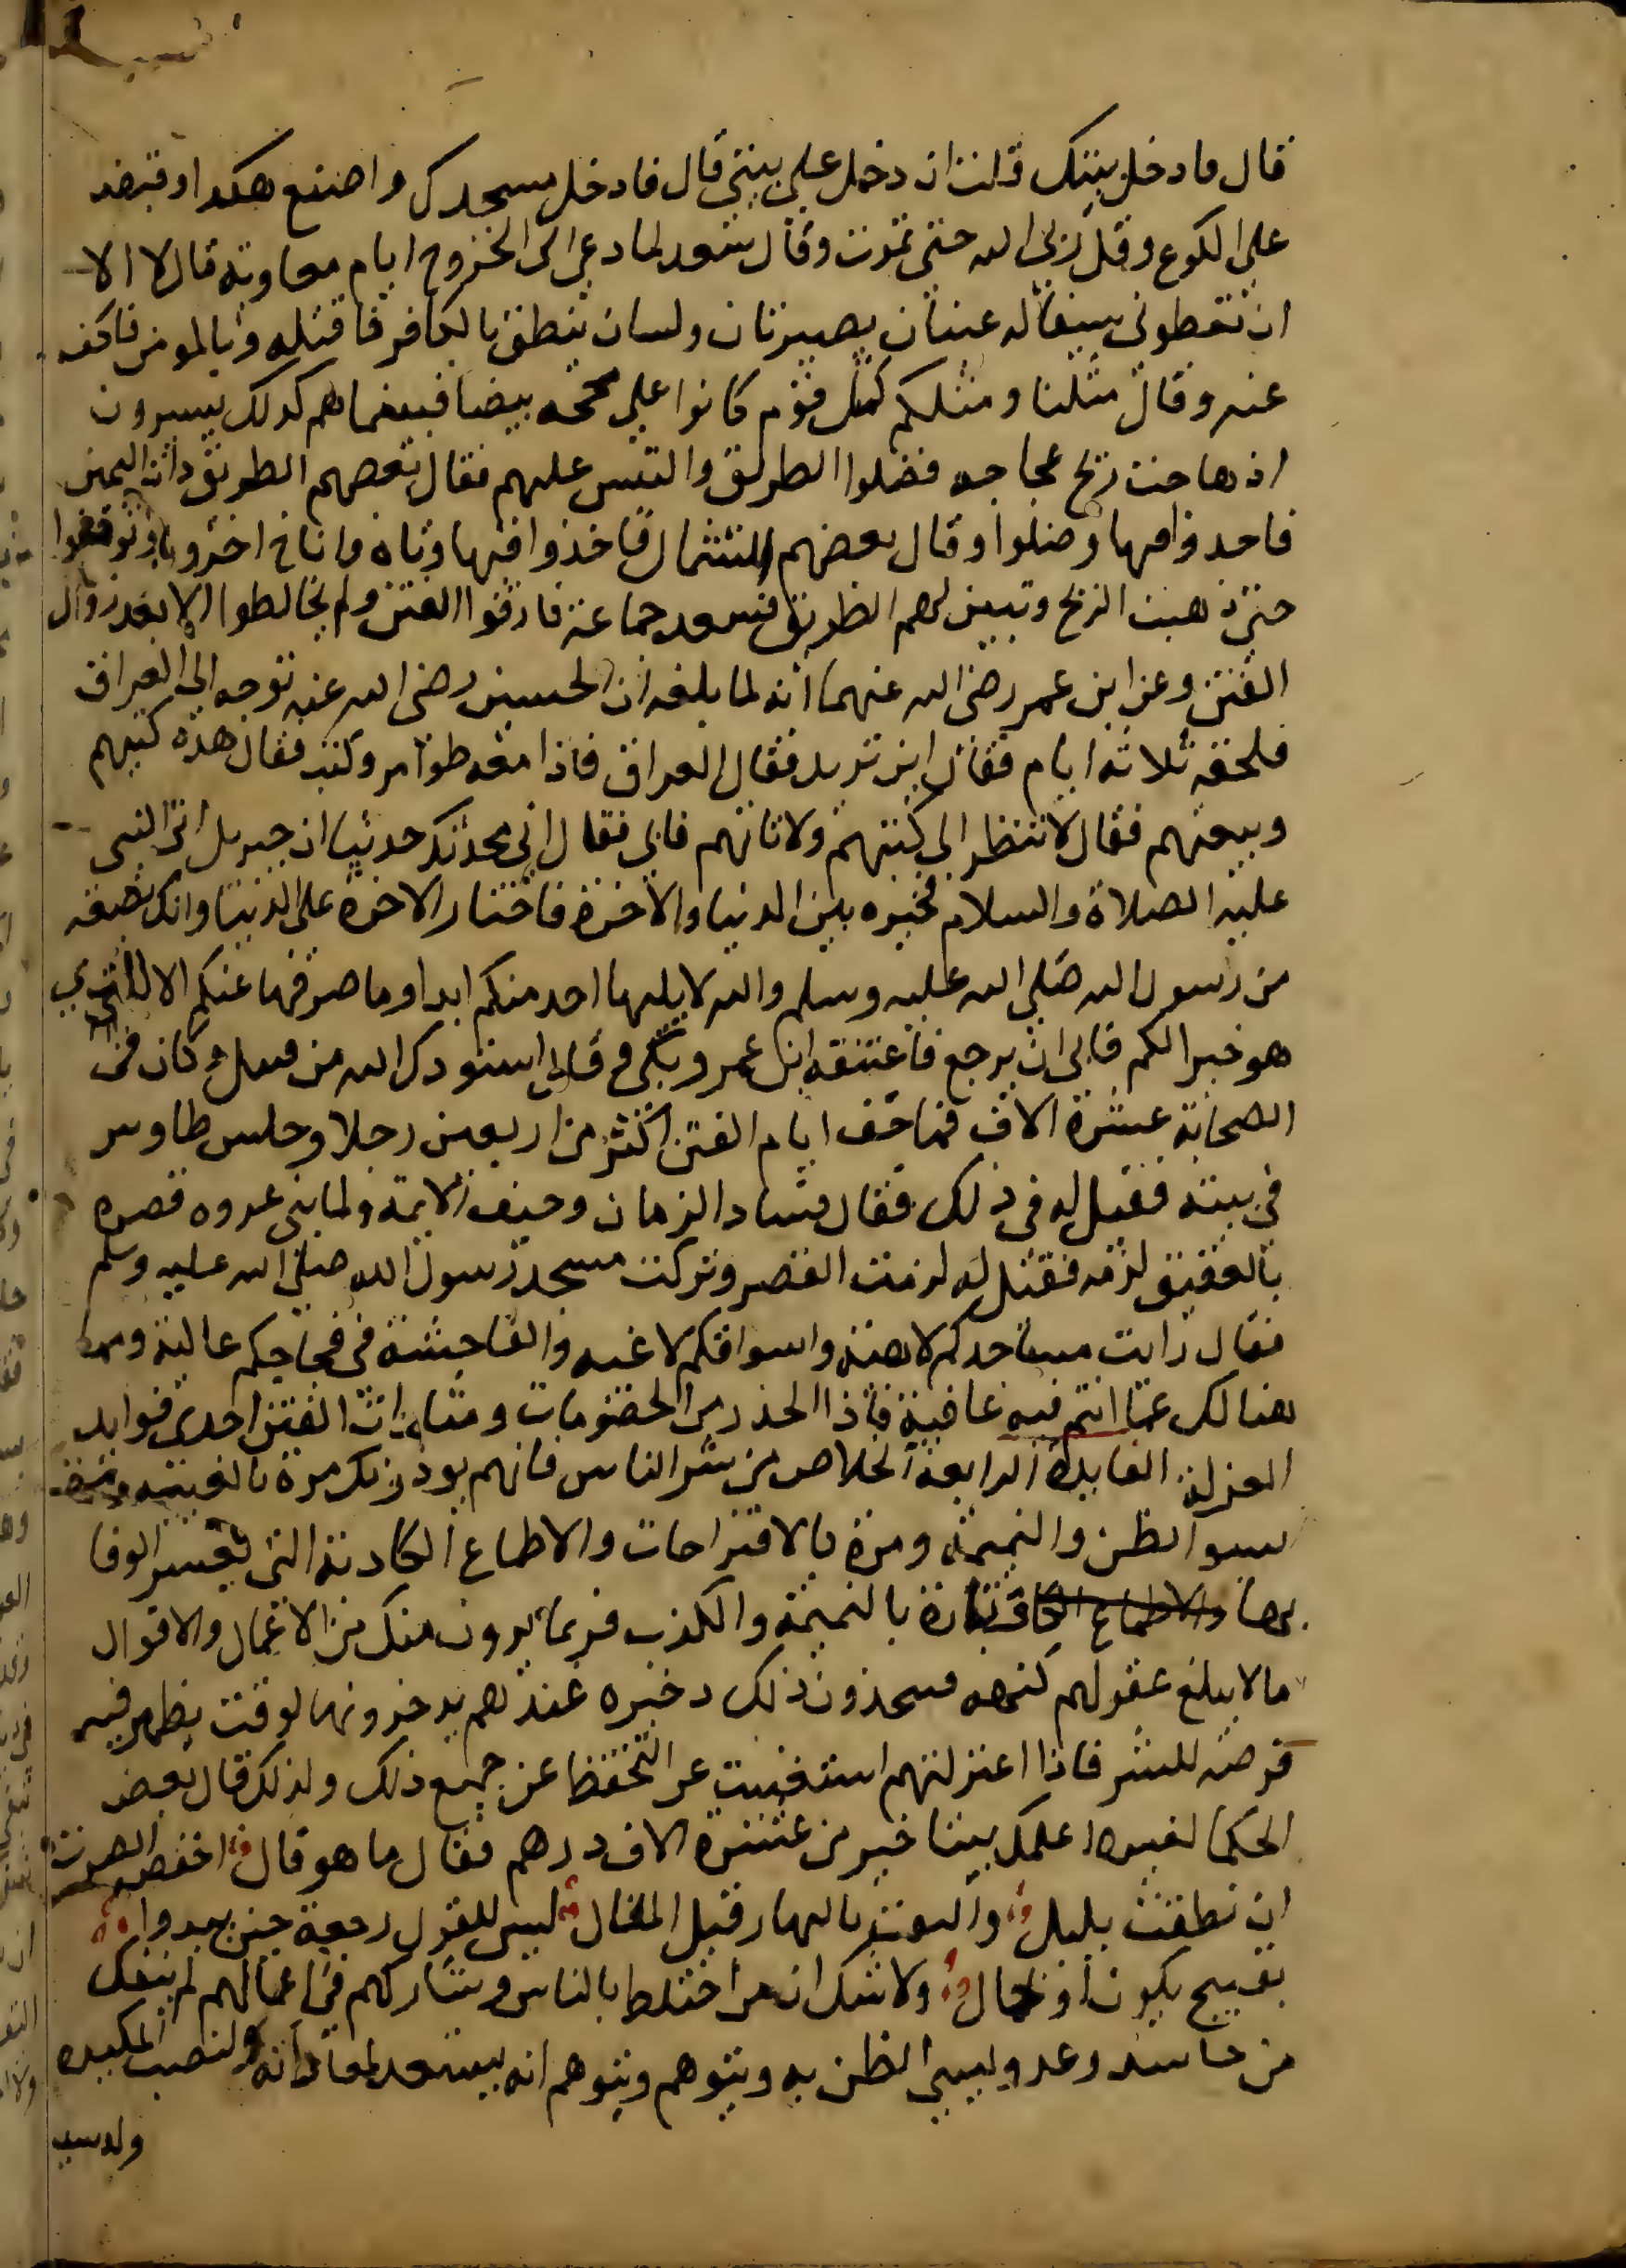 قال فادخل بيتك قلت ان دخل علي بيتي قال فادخل مسجدك واصنع هكدا وقبض
علي الكوع وقل ربي الله حتي تموت وقال سعد لما دعي الي الخروج ايام معاوية قال لا الا
ان تعطوني سيفا له عينان بصيرتان ولسان ينطق بالكافر فاقتله وبالمومن فاكف
عنه وقال مثلنا ومثلكم كمثل قوم كانوا علي محجه بيضا فبينما هم كدلك يسيرون
اذ هاجت ريح عجاجه فضلوا الطريق والتبس عليهم فقال بعضهم الطريق ذات اليمين
فاخذوا فيها وضلوا وقال بعضهم الشمال فاخذوا فيها وتاه واناخ اخرون وتوقفوا
حتي ذهبت الريح وتبين لهم الطريق فسعد جماعة فارقوا الفتن ولم يخالطوا الا بعد زوال
الفتن وعن ابن عمر رضي الله عنهما أنه لما بلغه ان الحسين رضي الله عنه توجه الي العراق
فلحقه ثلاثه ايام فقال اين تريد فقال العراق فاذا معه طوامر وكتب فقال هذه كتبهم
وبيعتهم فقال لا تنظر الي كتبهم ولا تاتهم فابي فقال اني محدثك حديثا ان جبريل اتي النبي
عليه الصلاة والسلام فخيره بين الدنيا والاخرة فاختار الاخره علي الدنيا وانك بضعه
من رسول الله صلي الله عليه وسلم والله لا يليها احد منكم ابدا وما صرفها عنكم الا للذي
هو خير الكم فابي ان يرجع فاعتنقه ابن عمر وبكي وقال استودعك الله من قتيل وكان في
الصحابة عشرة الاف فما خف ايام الفتن اكثر من اربعين رجلا وجلس طاوس
في بيته فقيل له في ذلك فقال فساد الزمان وحيف الايمة ولما بني عروه قصره
بالعقيق لزمه فقيل له لزمت القصر وتركت مسجد رسول الله صلي الله عليه وسلم
فقال رايت مساجدكم لاهية واسواقكم لاغيه والفاحشة في فجاجكم عالية وفيما
هنالك عما انتم فيه عافية فاذا الحذر من الخصومات ومثارات الفتن احدي فوايد
العزلة الفايدة الرابعة الخلاص من شر الناس فانهم يوذونك مرة بالغيبة ومرة
بسوا لظن والنميمة ومرة بالاقتراحات والاطماع الكادبة التي يعسر الوفا
بها وتارة بالنميمة والكذب فربما يرون منك من الاعمال والاقوال
ما لا يبلغ عقولهم كنهه فيتخذون ذلك دخيره عندهم يدخرونها لوقت يظهر فيه
فرصه للشر فاذا اعتزلتهم استغنيت عن التحفظ عن جميع ذلك ولذلك قال بعض
الحكما لغيره اعلمك بيتا خير من عشرة الاف درهم فقال ما هو قال اخفض الصوت
ان نطقت بليل والتفت بالنهار قبل المقال ليس للقول رجعة حين يبدوا
بقبيح يكون أو بجمال ولا شك ان من اختلط بالناس وشاركهم في اعمالهم لم ينفك
من حاسد وعدو يسي الظن به ويتوهم ويتوهم انه يستعد لمعاداته ولنصب المكيده
ولدسيـ